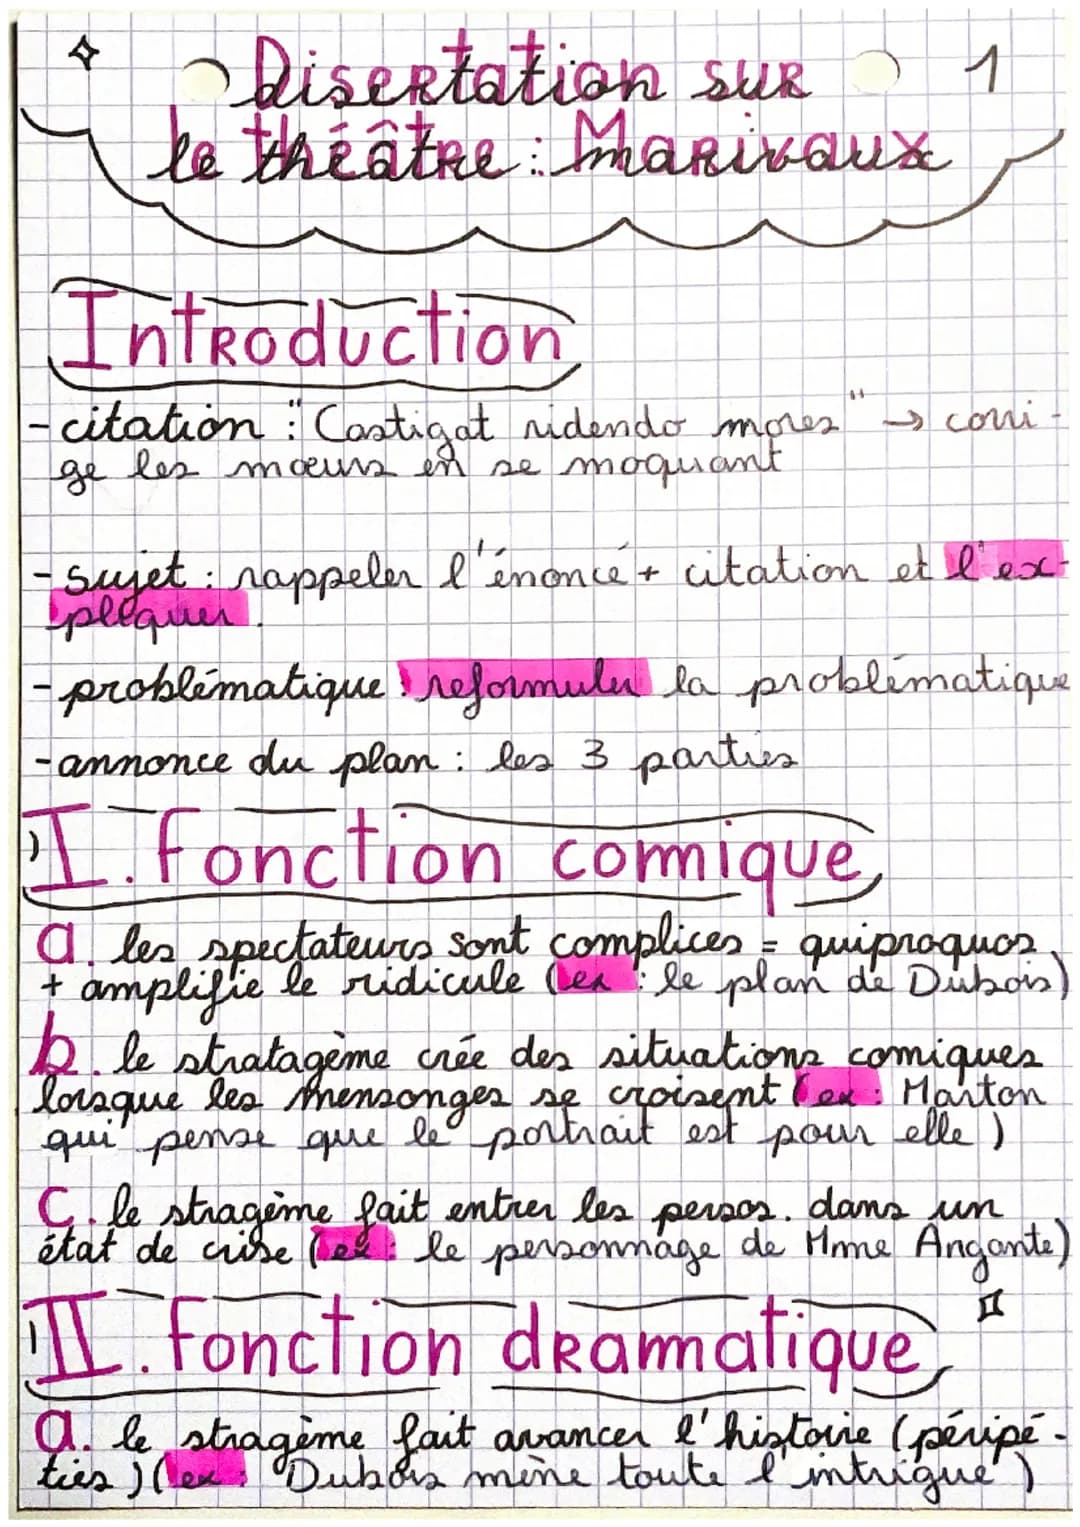 Disertation sur 1
le théâtre : Marivaux
Introduction
- citation : "Castigat ridendo mores" → corri-
ge les mœurs en se moquant
- sujet : rappeler l'énoncé + citation et l'ex-
pliquer.
- problématique : reformuler la problématique
- annonce du plan : les 3 parties
I. Fonction comique
a. les spectateurs sont complices = quiproquos
+ amplifie le ridicule (ex : le plan de Dubois)
b. le stratagème crée des situations comiques
lorsque les mensonges se croisent (ex : Marton
qui pense que le portrait est pour elle)
c. le stragème fait entrer les persos. dans un
état de crise (ex : le personnage de Mme Angante)
II. Fonction dramatique
a. le stragème fait avancer l'histoire (péripé-
ties) (ex : "Dubois mène toute l'intrigue")